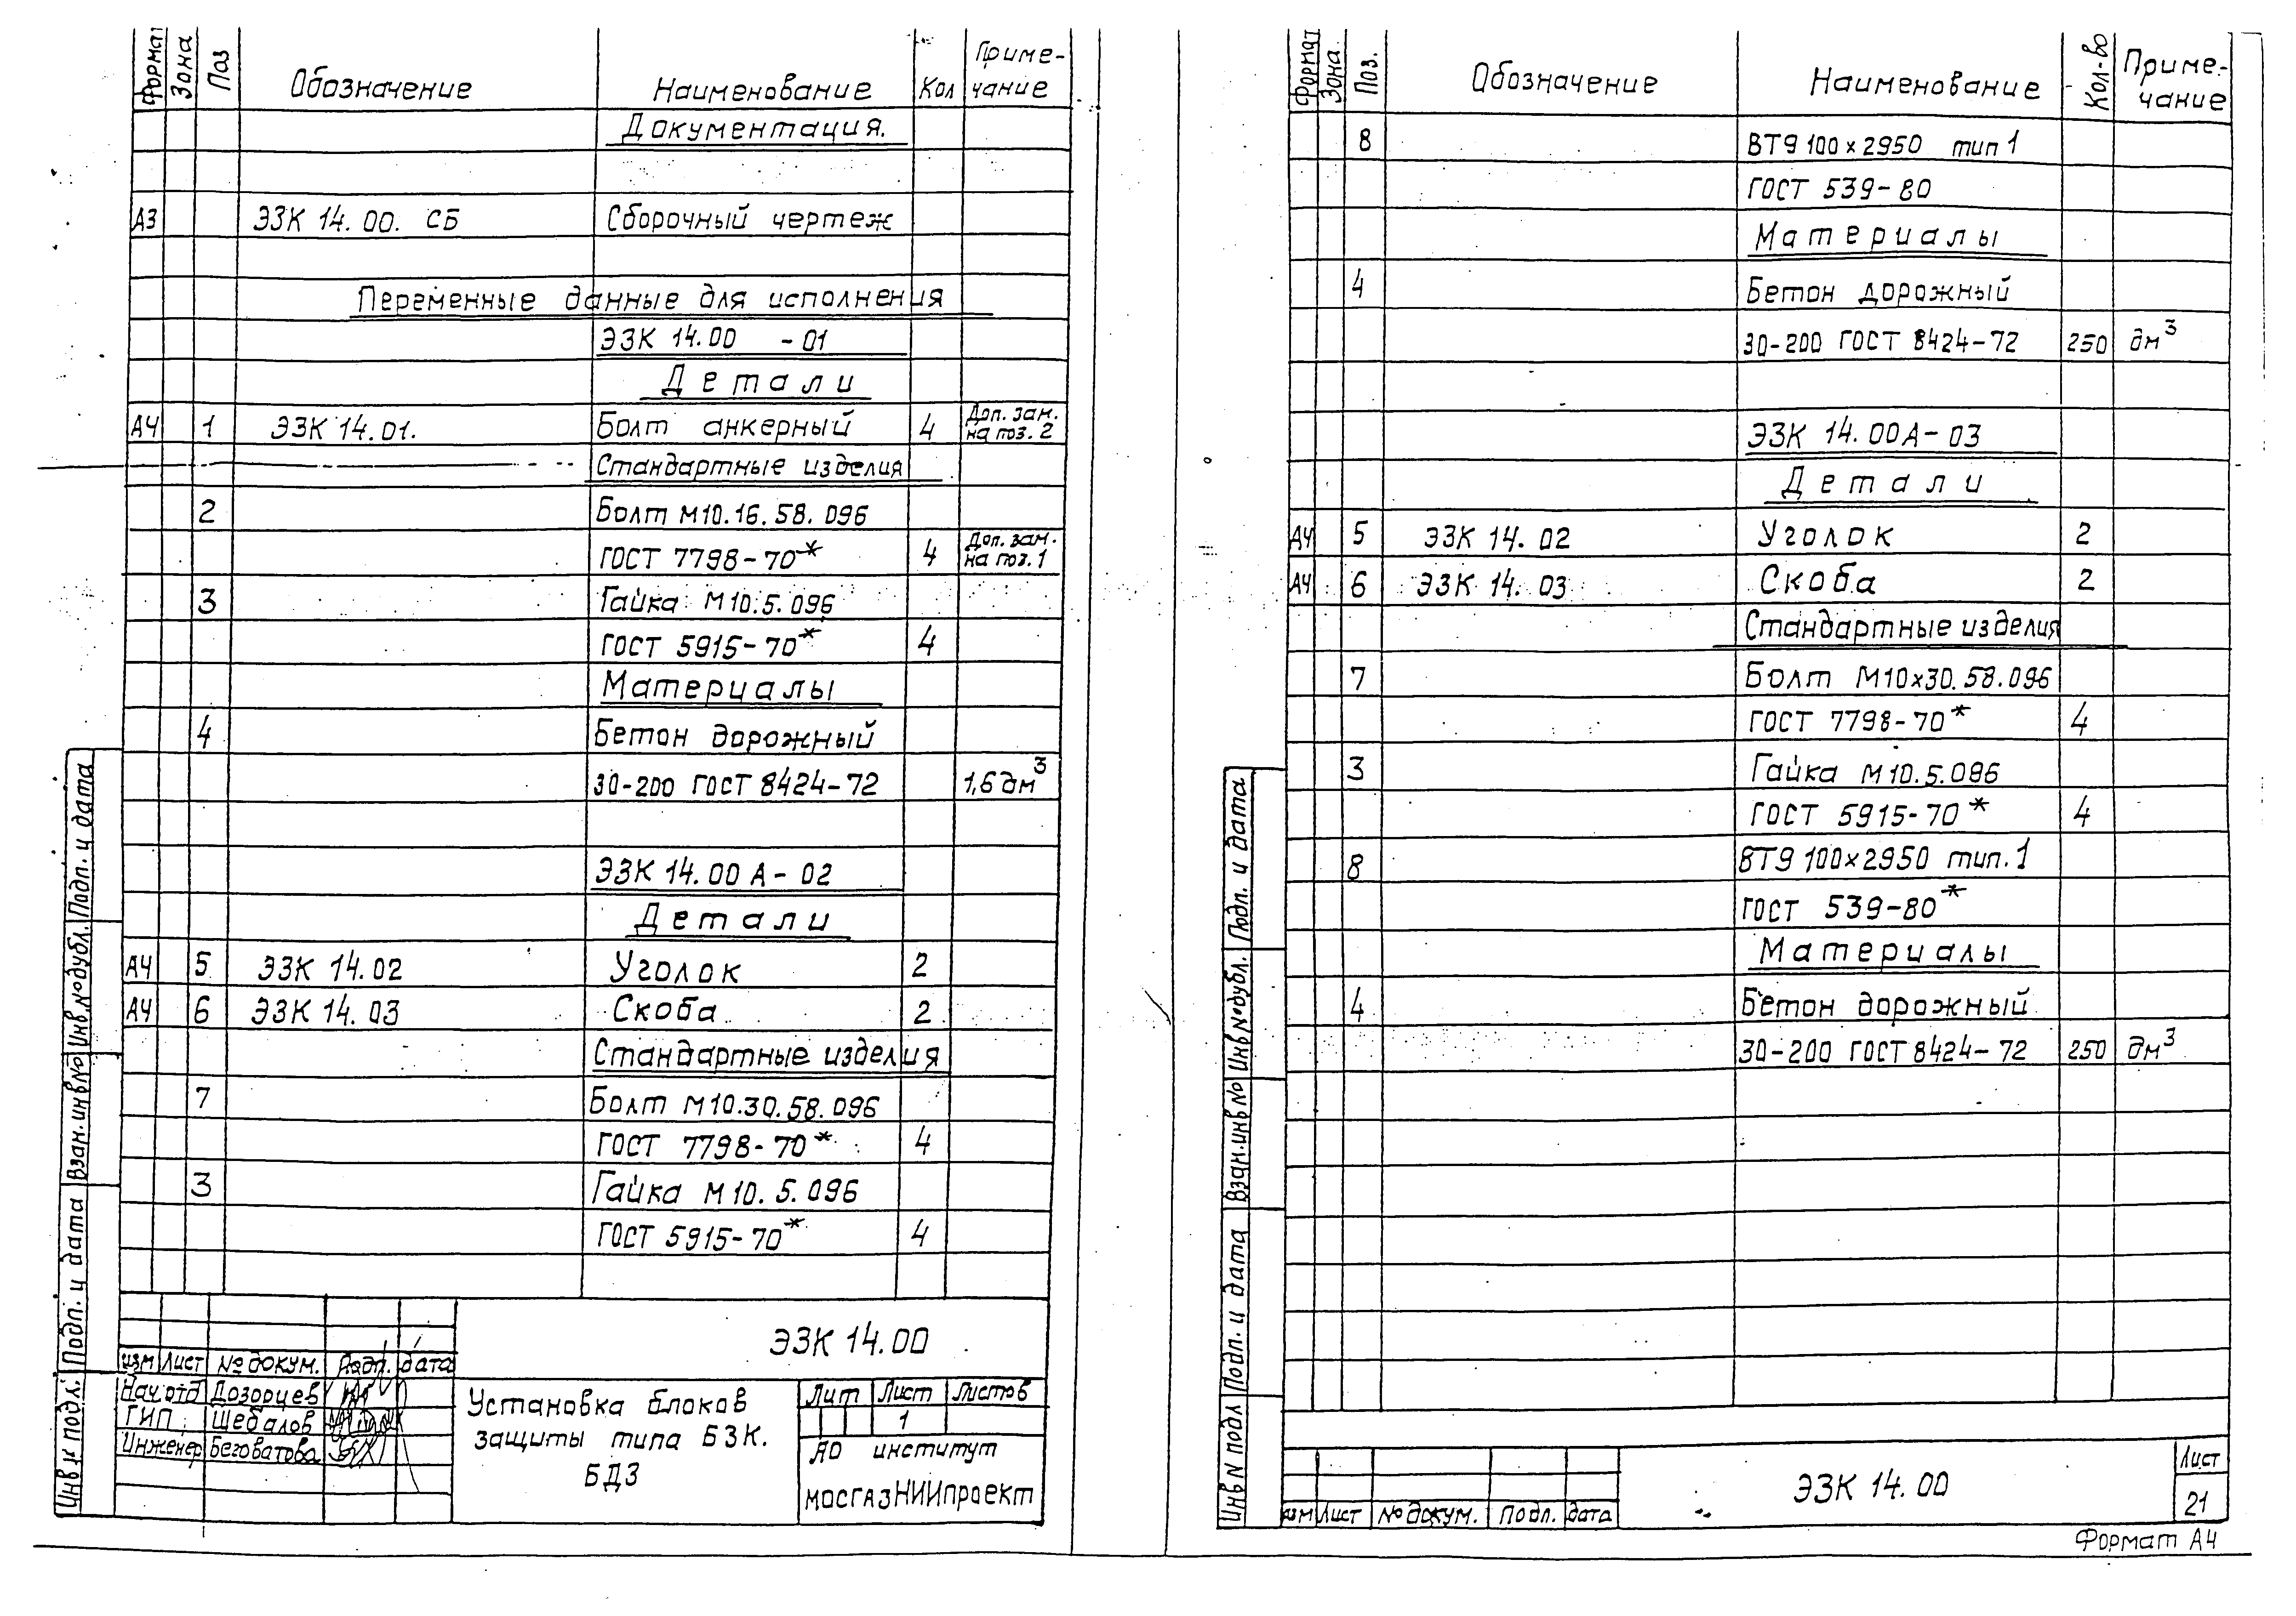 Формат Зона Поз Обозначение Наименование Кол Приме-
чание
Документация.
А3 ЭЗК 14.00. СБ Сборочный чертеж
Переменные данные для исполнения
ЭЗК 14.00 -01
Детали
А4 1 ЭЗК 14.01. Болт анкерный 4 Доп. зам.
на поз. 2
Стандартные изделия
2 Болт М10.16.58.096
ГОСТ 7798-70* 4 Доп. зам.
на поз. 1
3 Гайка М10.5.096
ГОСТ 5915-70* 4
Материалы
4 Бетон дорожный
30-200 ГОСТ 8424-72 1,6 дм³
ЭЗК 14.00 А-02
Детали
А4 5 ЭЗК 14.02 Уголок 2
А4 6 ЭЗК 14.03 Скоба 2
Стандартные изделия
7 Болт М10.30.58.096
ГОСТ 7798-70* 4
3 Гайка М10.5.096
ГОСТ 5915-70* 4
Подп. и дата
Инв.№дубл.
Взам.инв№
Подп. и дата
Инв № подл.
ЭЗК 14.00
изм Лист № докум. Подп. дата
Нач.отд Дозорцев
ГИП Шебалов
Инженер Беговатова
Установка блоков
защиты типа БЗК.
БДЗ
Лит Лист Листов
1
АО институт
МОСГАЗНИИпроект
Формат Зона Поз. Обозначение Наименование Кол-во Приме-
чание
8 ВТ9 100×2950 тип 1
ГОСТ 539-80
Материалы
4 Бетон дорожный
30-200 ГОСТ 8424-72 250 дм³
ЭЗК 14.00А-03
Детали
А4 5 ЭЗК 14.02 Уголок 2
А4 6 ЭЗК 14.03 Скоба 2
Стандартные изделия
7 Болт М10×30.58.096
ГОСТ 7798-70* 4
3 Гайка М10.5.096
ГОСТ 5915-70* 4
8 ВТ9 100×2950 тип.1
ГОСТ 539-80*
Материалы
4 Бетон дорожный
30-200 ГОСТ 8424-72 250 дм³
Подп. и дата
Инв№дубл.
Взам.инв№
Подп. и дата
Инв N подл
изм Лист № докум. Подп. дата
ЭЗК 14.00
Лист
21
Формат А4